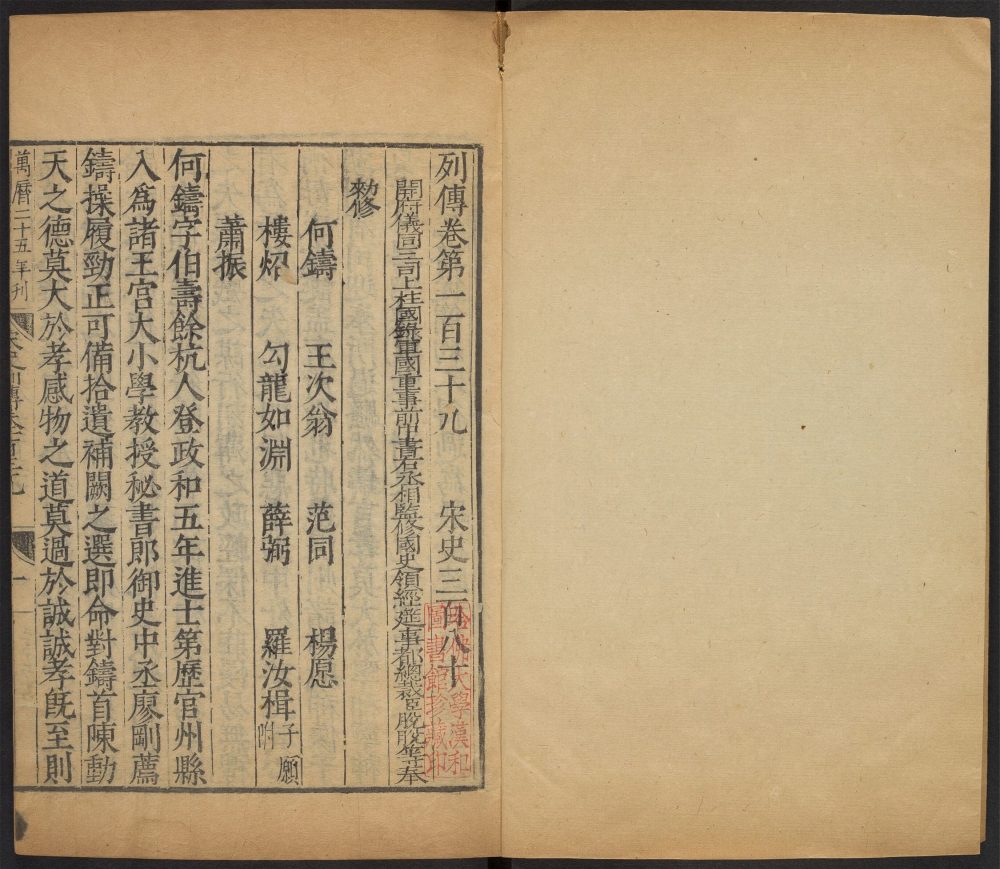 列傳卷第一百三十九 宋史三百八十
開府儀同三司上柱國錄軍國重事前中書右丞相監修國史領經筵事都總裁臣脫脫等奉
勑修
何鑄 王次翁 范同 楊愿
樓炤 勾龍如淵 薛弼 羅汝楫子願附
蕭振
何鑄字伯壽餘杭人登政和五年進士第歷官州縣
入爲諸王宮大小學教授秘書郎御史中丞廖剛薦
鑄操履勁正可備拾遺補闕之選即命對鑄首陳動
天之德莫大於孝感物之道莫過於誠誠孝旣至則
萬曆二十五年刊
一
哈佛大學漢和
圖書館珍藏印